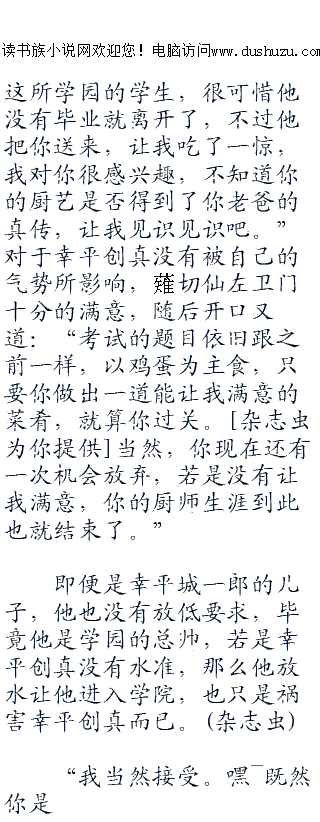 读书族小说网欢迎您！电脑访问www.dushuzu.com
这所学园的学生，很可惜他
没有毕业就离开了，不过他
把你送来，让我吃了一惊，
我对你很感兴趣，不知道你
的厨艺是否得到了你老爸的
真传，让我见识见识吧。”
对于幸平创真没有被自己的
气势所影响，薙切仙左卫门
十分的满意，随后开口又
道：“考试的题目依旧跟之
前一样，以鸡蛋为主食，只
要你做出一道能让我满意的
菜肴，就算你过关。[杂志虫
为你提供]当然，你现在还有
一次机会放弃，若是没有让
我满意，你的厨师生涯到此
也就结束了。”
即便是幸平城一郎的儿
子，他也没有放低要求，毕
竟他是学园的总帅，若是幸
平创真没有水准，那么他放
水让他进入学院，也只是祸
害幸平创真而已。(杂志虫)
“我当然接受。嘿¯既然
你是